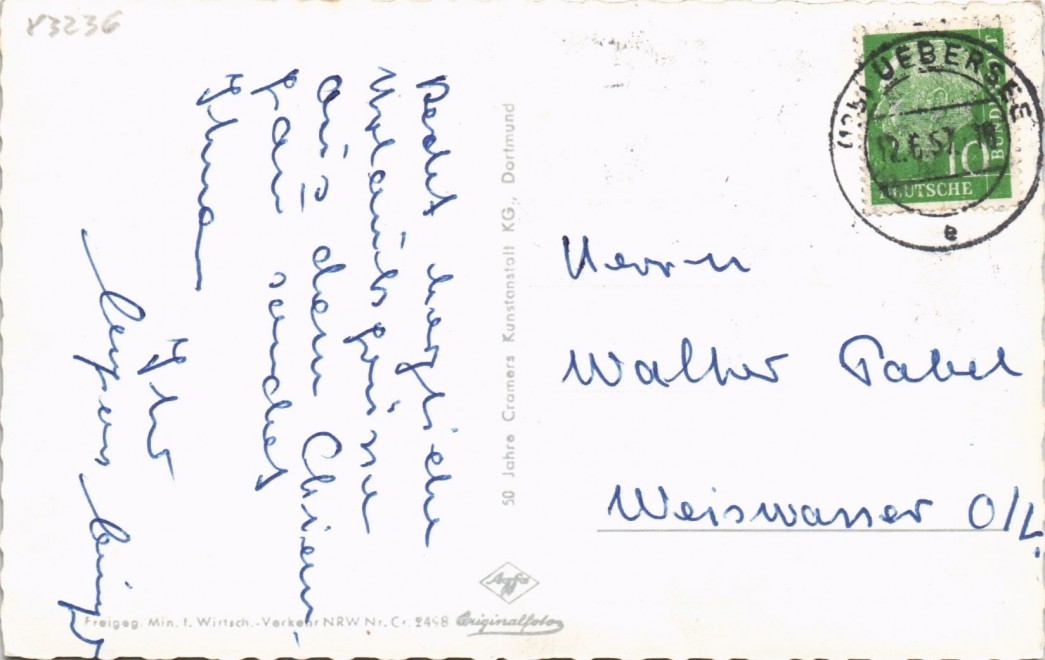 83236
Recht herzliche
Urlaubsgrüsse
aus dem Chiem-
gau sendet
Ihnen
Ihr
50 Jahre Cramers Kunstanstalt KG., Dortmund
UEBERSEE
12.6.57.
e
10
DEUTSCHE
BUNDESPOST
Herrn
Walter Pabel
Weiswasser O/L.
Freigeg. Min. f. Wirtsch.-Verkehr NRW Nr. Cr. 2498
Agfa
Originalfoto